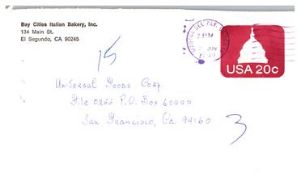 Bay Cities Italian Bakery, Inc.
134 Main St.
El Segundo, CA 90245
15
USA 20c
Universal Foods Corp.
File 0255 P.O. Box 60000
San Francisco, Ca 94160
3